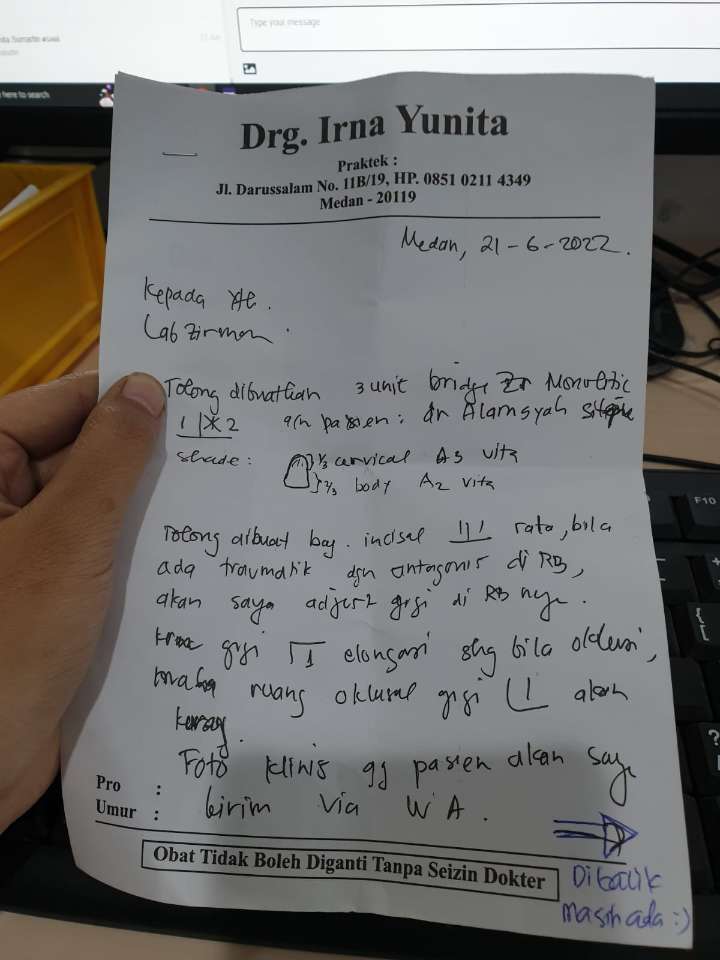 Type your message
here to search
Drg. Irna Yunita
Praktek :
Jl. Darussalam No. 11B/19, HP. 0851 0211 4349
Medan - 20119
Medan, 21-6-2022.
Kepada Yth.
Lab Zirmon
Tolong dibuatkan 3 unit bridge Zr Monolitic
1|X2 a/n pasien : dr Alamsyah
shade : 1/3 cervical A3 vita
2/3 body A2 vita
Tolong dibuat bag. incisal 1|1 rata, bila
ada traumatik dgn antagonis di RB,
akan saya adjust gigi di RB nya.
gigi 1 elongasi shg bila oklusi,
maka ruang oklusal gigi 1 akan
kurang.
Foto klinis gg pasien akan saya
kirim via WA.
Pro :
Umur :
Obat Tidak Boleh Diganti Tanpa Seizin Dokter
Dibalik
masih ada :)
F10